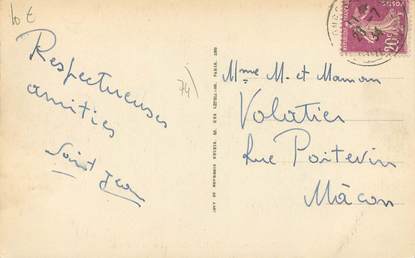 10 €
Respectueuses
amitiés
Saint Jean
74)
Mme M. et Maman
Volatier
Rue Poitevin
Mâcon
20c